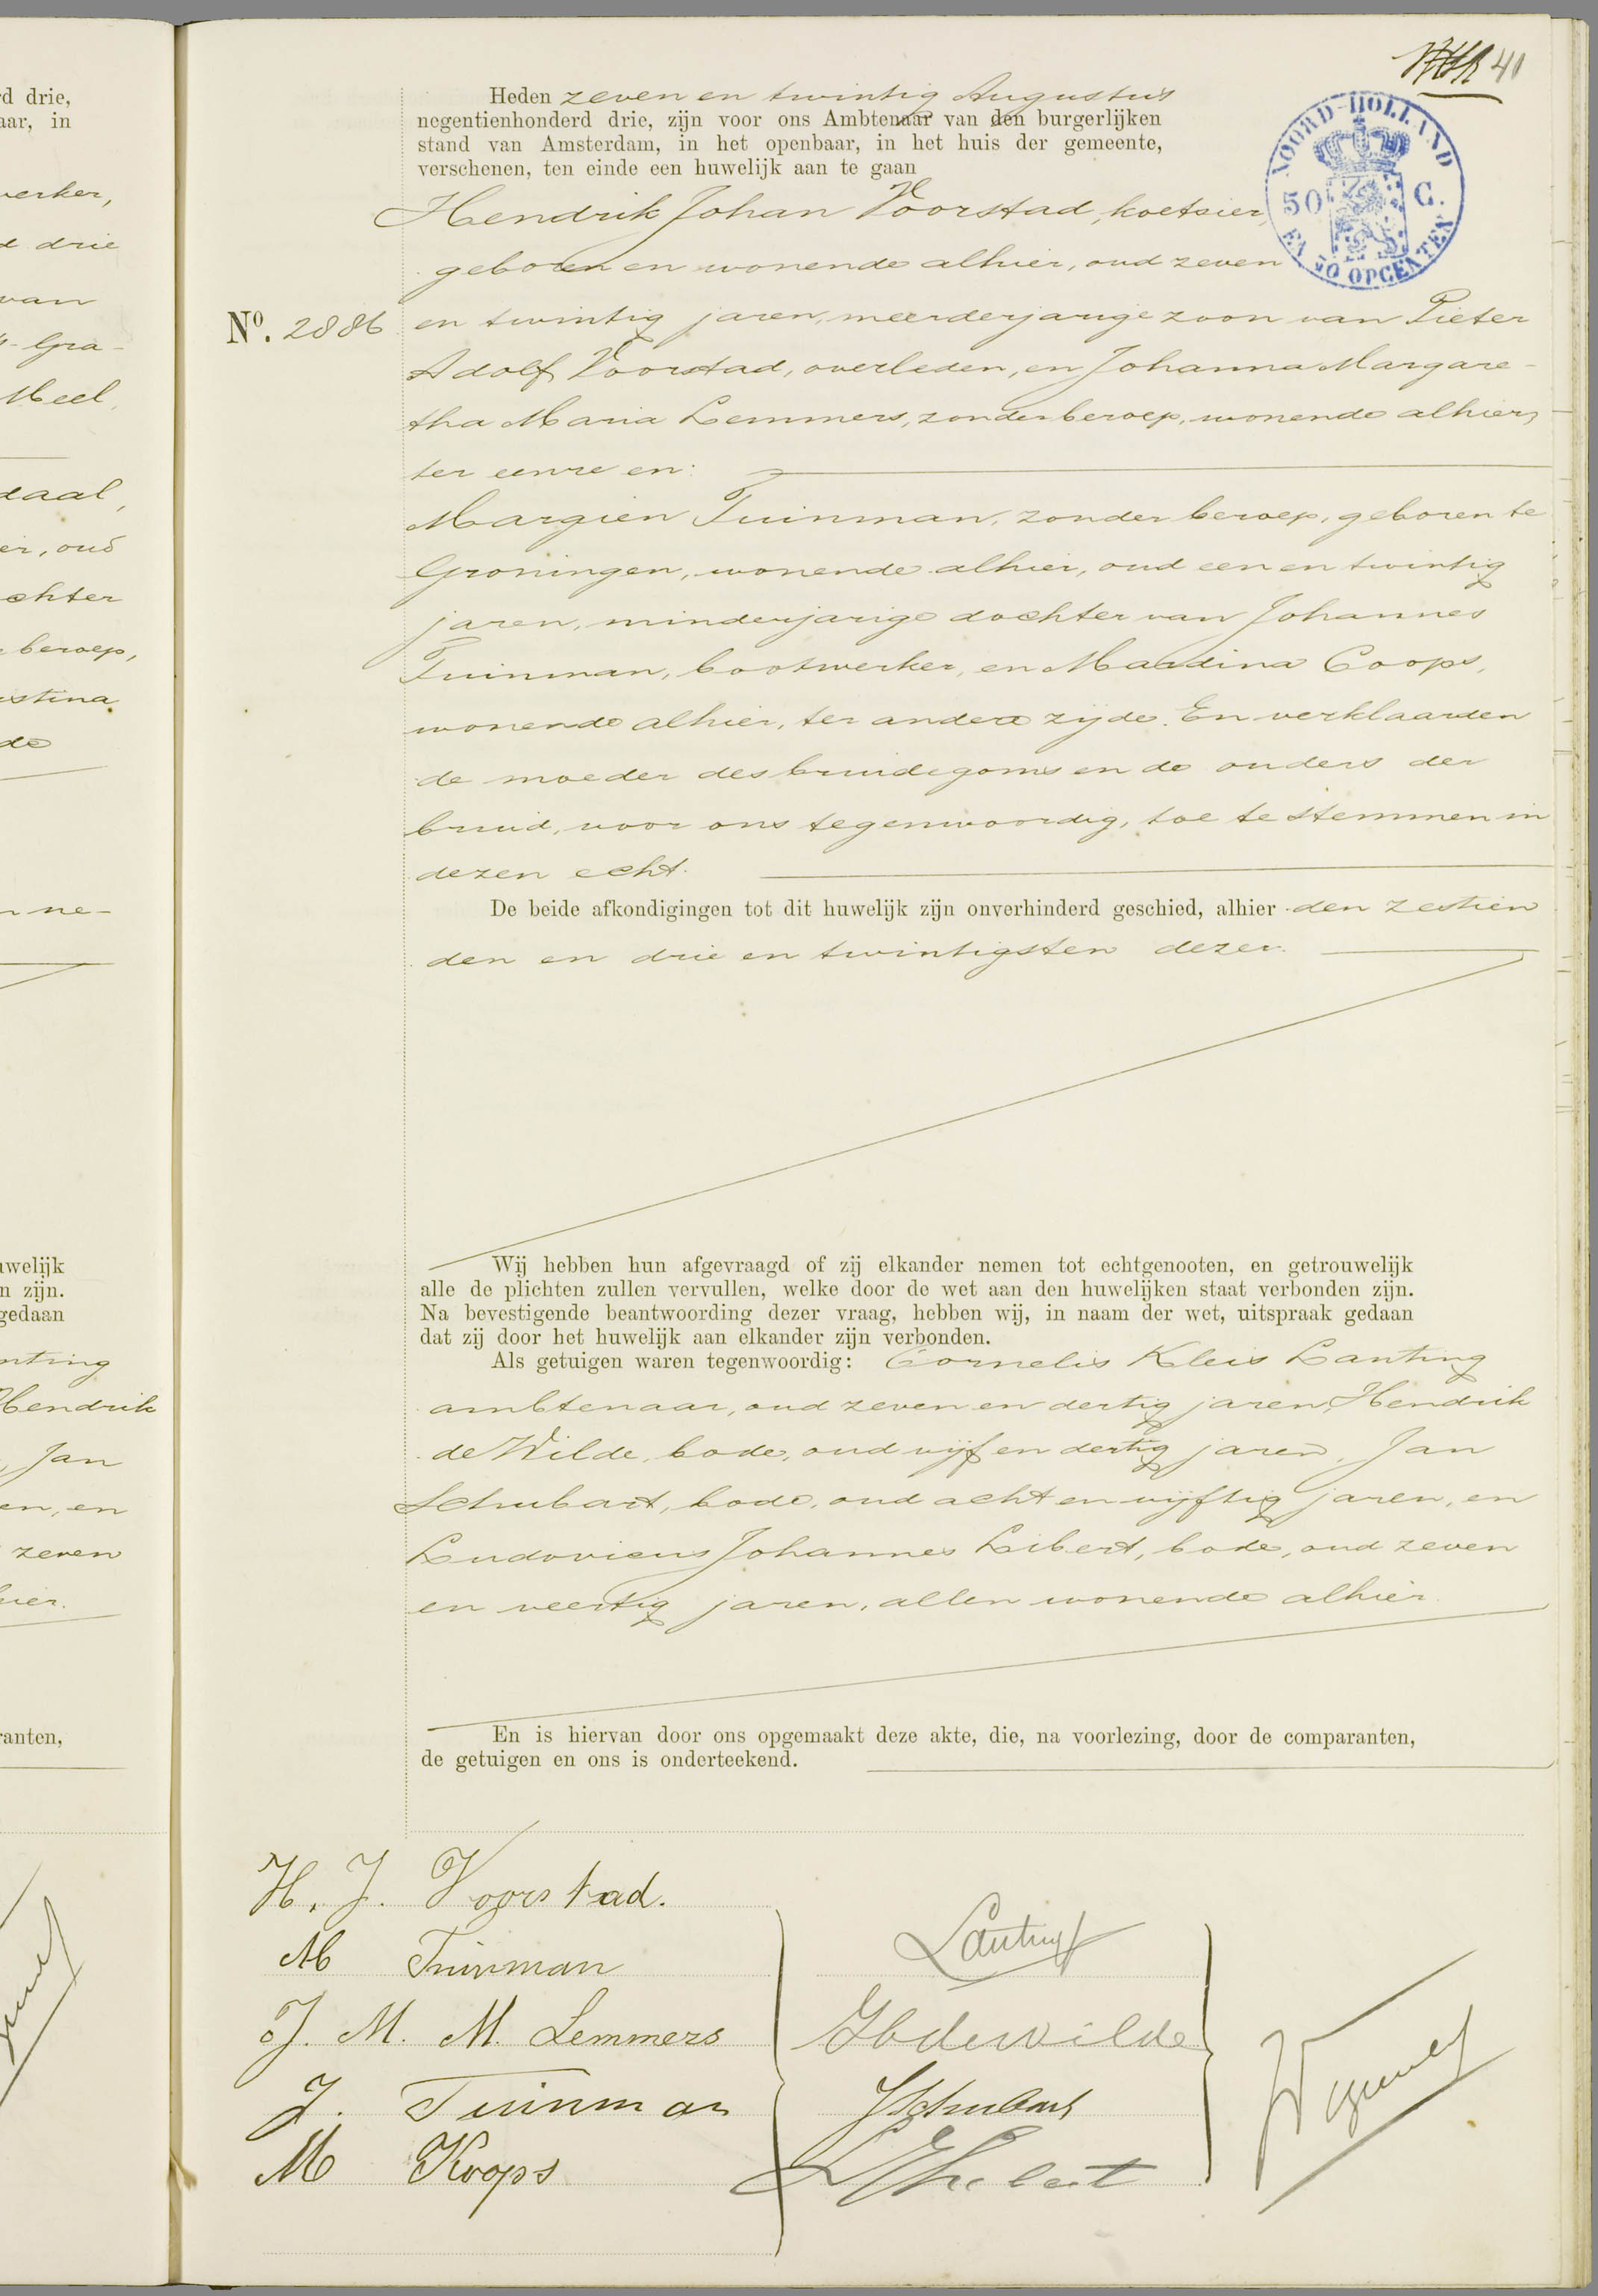 d drie,
aar, in
werker,
d drie
van
Gra-
Meel,
daal,
er, oud
ochter
beroep,
istina
de
ne-
uwelijk
n zijn.
gedaan
nting
Hendrik
, Jan
en, en
zeven
hier.
ranten,
41
NOORD-HOLLAND
50 C.
EN 50 OPCENTEN
Heden zeven en twintig Augustus
negentienhonderd drie, zijn voor ons Ambtenaar van den burgerlijken
stand van Amsterdam, in het openbaar, in het huis der gemeente,
verschenen, ten einde een huwelijk aan te gaan
Hendrik Johan Voorstad, koetsier,
geboren en wonende alhier, oud zeven
No. 2886 en twintig jaren, meerderjarige zoon van Pieter
Adolf Voorstad, overleden, en Johanna Margare-
tha Maria Lemmers, zonder beroep, wonende alhier,
ter eenre en:
Margien Tuinman, zonder beroep, geboren te
Groningen, wonende alhier, oud een en twintig
jaren, minderjarige dochter van Johannes
Tuinman, bootwerker, en Mardina Coops,
wonende alhier, ter andere zijde. En verklaarden
de moeder des bruidegoms en de ouders der
bruid, voor ons tegenwoordig, toe te stemmen in
dezen echt.
De beide afkondigingen tot dit huwelijk zijn onverhinderd geschied, alhier den zestien
den en drie en twintigsten dezer.
Wij hebben hun afgevraagd of zij elkander nemen tot echtgenooten, en getrouwelijk
alle de plichten zullen vervullen, welke door de wet aan den huwelijken staat verbonden zijn.
Na bevestigende beantwoording dezer vraag, hebben wij, in naam der wet, uitspraak gedaan
dat zij door het huwelijk aan elkander zijn verbonden.
Als getuigen waren tegenwoordig: Cornelis Kleis Lanting
ambtenaar, oud zeven en dertig jaren, Hendrik
de Wilde, bode, oud vijf en dertig jaren, Jan
Schubart, bode, oud acht en vijftig jaren, en
Ludovicus Johannes Libert, bode, oud zeven
en veertig jaren, allen wonende alhier.
En is hiervan door ons opgemaakt deze akte, die, na voorlezing, door de comparanten,
de getuigen en ons is onderteekend.
H. J. Voorstad.
M Tuinman
J. M. M. Lemmers
J. Tuinman
M Koops
Lanting
HdeWilde
JSchubart
LJLibert